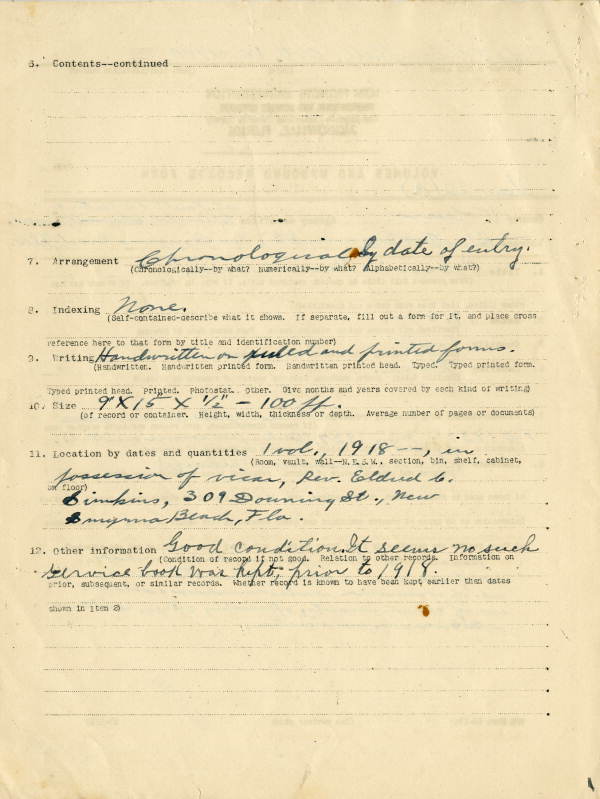 6. Contents--continued
7. Arrangement Chronologically by date of entry.
(Chronologically--by what? Numerically--by what? Alphabetically--by what?)
8. Indexing None.
(Self-contained-describe what it shows. If separate, fill out a form for it, and place cross
reference here to that form by title and identification number)
9. Writing Handwritten on ruled and printed forms.
(Handwritten. Handwritten printed form. Handwritten printed head. Typed. Typed printed form.
Typed printed head. Printed. Photostat. Other. Give months and years covered by each kind of writing)
10. Size 9" X 15 X 1/2" - 100 pp.
(of record or container. Height, width, thickness or depth. Average number of pages or documents)
11. Location by dates and quantities 1 vol., 1918--, in
(Room, vault, wall--N.E.S.W., section, bin, shelf, cabinet,
possession of vicar, Rev. Eldred C.
on floor)
Simkins, 309 Downing St., New
Smyrna Beach, Fla.
12. Other information Good condition. It seems no such
(Condition of record if not good. Relation to other records. Information on
service book was kept, prior to 1918.
prior, subsequent, or similar records. Whether record is known to have been kept earlier than dates
shown in Item 2)